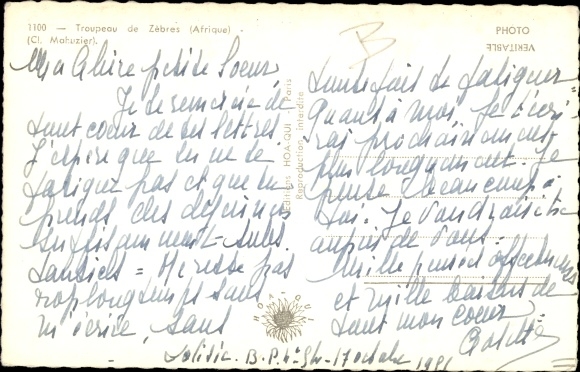 1100 — Troupeau de Zèbres (Afrique) -
(Cl. Mahuzier).
PHOTO
VERITABLE
B
Ma chère petite Soeur
Je te remercie de
tout coeur de tes lettres
J'espère que tu ne te
fatigues pas et que tu
prends des déjeuners
suffisamment subs
tantiels = Ne reste pas
trop longtemps sans
m'écrire, sans
toutefois te fatiguer
Quant à moi, je t'écri
rai prochainement
plus longuement. Je
pense beaucoup à
toi. Je voudrais être
auprès de vous.
Mille pensées affectueuses
et mille baisers de
tout mon coeur
Editions HOA-QUI - Paris
Reproduction interdite
HOA-QUI
B.P. 17 octobre